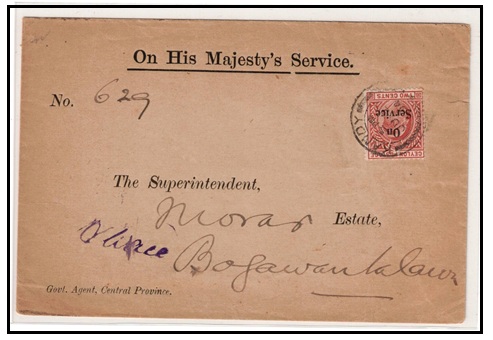 On His Majesty's Service.
No. 629
TWO CENTS
On
Service
CEYLON
KANDY
The Superintendent,
Morar Estate,
Bogawantalawa
Govt. Agent, Central Province.